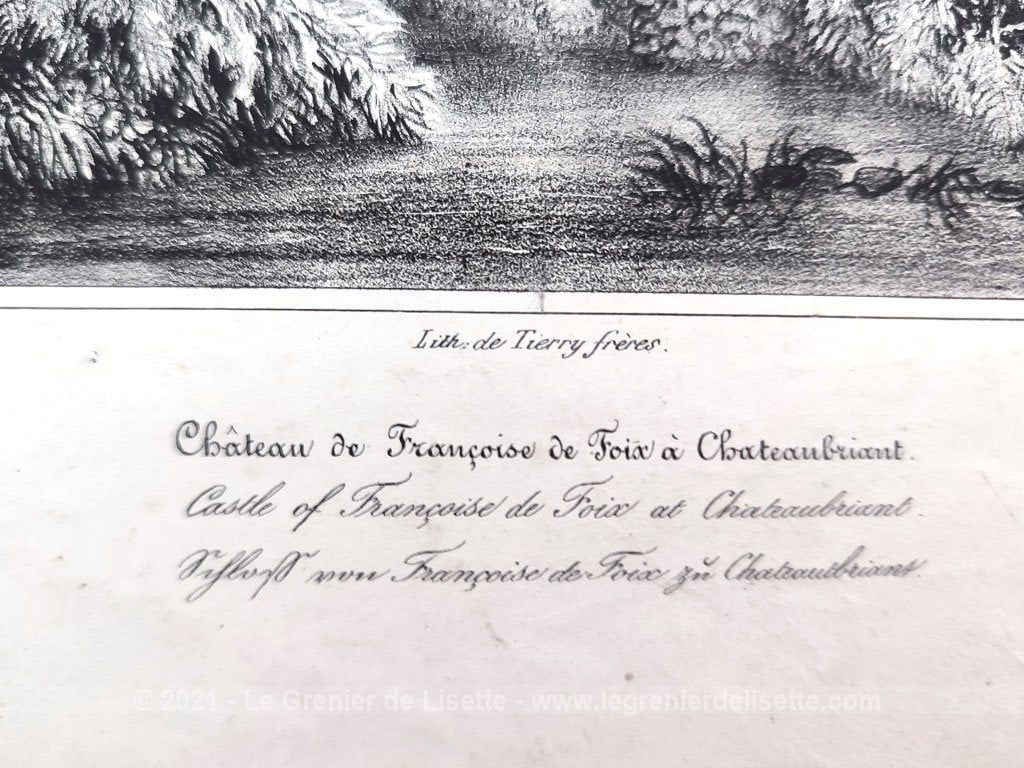 Lith: de Tierry frères.
Château de Françoise de Foix à Chateaubriant.
Castle of Françoise de Foix at Chateaubriant.
Schloß von Françoise de Foix zŭ Chateautbriant.
© 2021 - Le Grenier de Lisette - www.legrenierdelisette.com